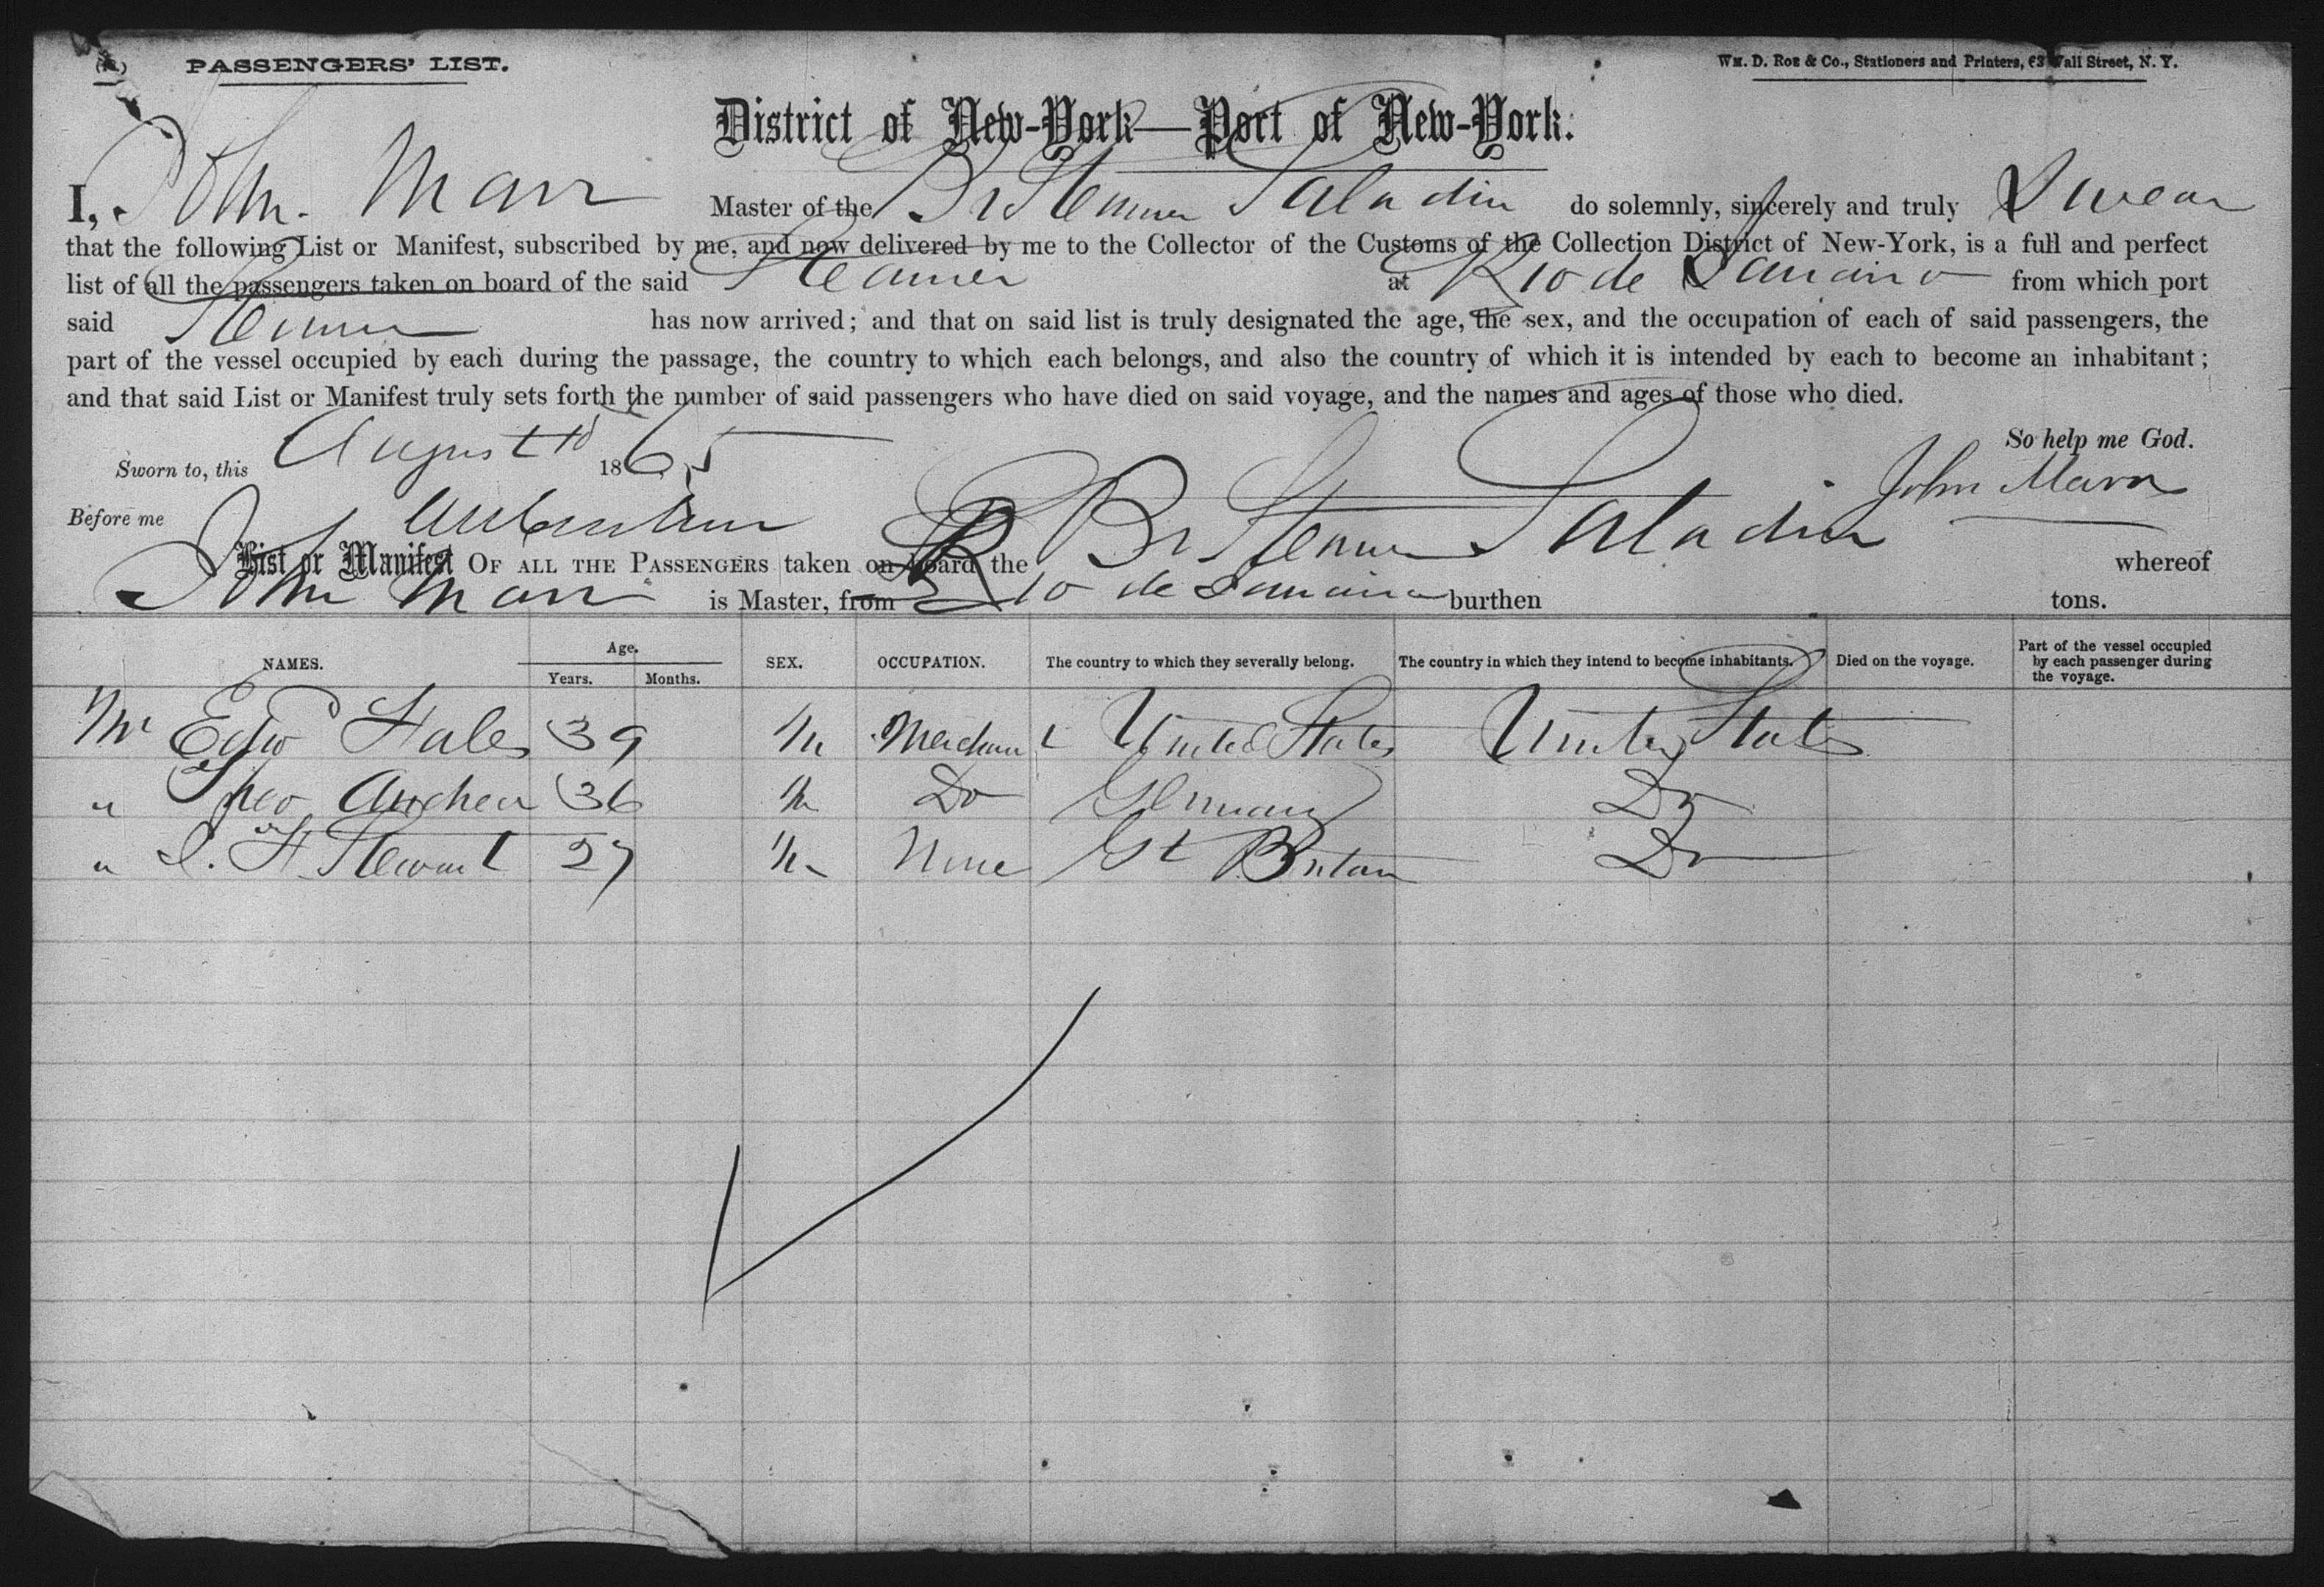 PASSENGERS' LIST.
Wm. D. Roe & Co., Stationers and Printers, 63 Wall Street, N. Y.
District of New-York—Port of New-York.
I, John Marr Master of the Br Steamer Saladin do solemnly, sincerely and truly Swear
that the following List or Manifest, subscribed by me, and now delivered by me to the Collector of the Customs of the Collection District of New-York, is a full and perfect
list of all the passengers taken on board of the said Steamer at Rio de Janairo from which port
said Steamer has now arrived; and that on said list is truly designated the age, the sex, and the occupation of each of said passengers, the
part of the vessel occupied by each during the passage, the country to which each belongs, and also the country of which it is intended by each to become an inhabitant;
and that said List or Manifest truly sets forth the number of said passengers who have died on said voyage, and the names and ages of those who died.
So help me God.
Sworn to, this August 1865
John Marr
Before me
List or Manifest OF ALL THE PASSENGERS taken on board the Br Steamer Saladin whereof
John Marr is Master, from Rio de Janairo burthen tons.
NAMES. Age. Years. Months. SEX. OCCUPATION. The country to which they severally belong. The country in which they intend to become inhabitants. Died on the voyage. Part of the vessel occupied by each passenger during the voyage.
Mr Edwd Hales 39 M Merchant United States United States
" Theo 36 M Do Germany Do
" H Stewart 27 M None Gt Britain Do